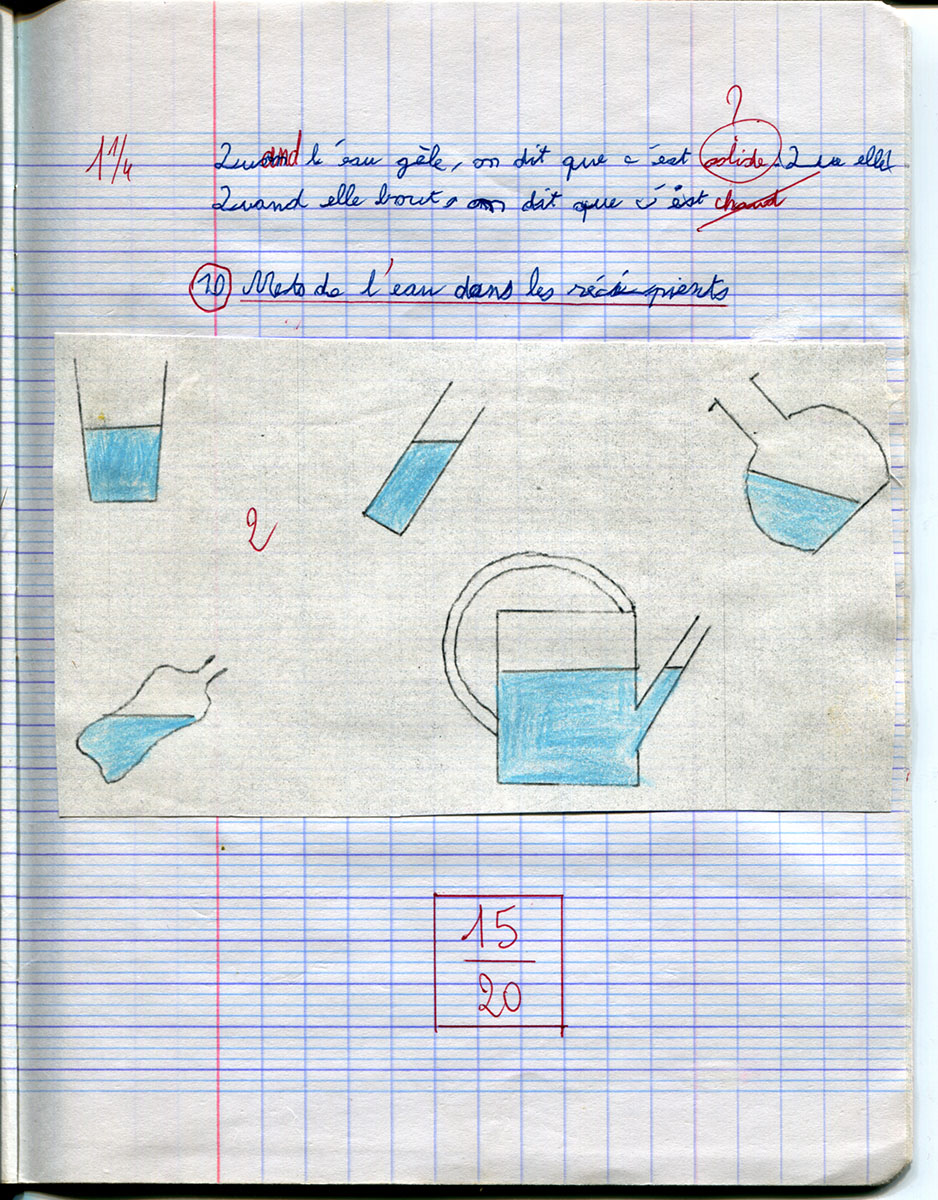 1 1/4
?
Quand l'eau gèle, on dit que c'est solide. Que elle
Quand elle bout, on dit que c'est chaud
10 Mets de l'eau dans les récipients
2
15
20